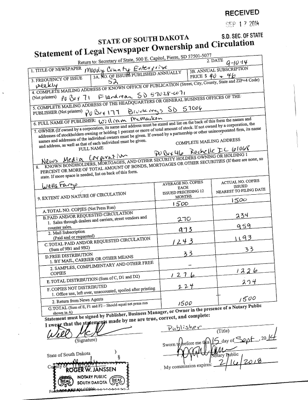 RECEIVED
SEP 17 2014
S.D. SEC. OF STATE
STATE OF SOUTH DAKOTA
Statement of Legal Newspaper Ownership and Circulation
Return to: Secretary of State, 500 E. Capitol, Pierre, SD 57501-5077
1. TITLE OF NEWSPAPER Moody County Enterprise
2. DATE 9-10-14
3. FREQUENCY OF ISSUE
weekly
3A. NO. OF ISSUES PUBLISHED ANNUALLY
52
3B. ANNUAL SUBSCRIPTION
PRICE $
4. COMPLETE MAILING ADDRESS OF KNOWN OFFICE OF PUBLICATION (Street, City, County, State and ZIP+4 Code)
(Not printers) PO Box 71 Flandreau, SD 57028-0071
5. COMPLETE MAILING ADDRESS OF THE HEADQUARTERS OR GENERAL BUSINESS OFFICES OF THE
PUBLISHER (Not printers) PO Box 177 Brookings, SD 57006
6. FULL NAME OF PUBLISHER: William McMacken
7. OWNER (If owned by a corporation, its name and address must be stated and
FULL NAME
COMPLETE MAILING ADDRESS
News Media Corporation PO Box 46 Rochelle IL 61068
8. KNOWN BONDHOLDERS, MORTGAGEES, AND OTHER SECURITY HOLDERS OWNING OR HOLDING 1
PERCENT OR MORE OF TOTAL AMOUNT OF BONDS, MORTGAGES OR OTHER SECURITIES (If there are none, so
state. If more space is needed, list on back of this form.
Wells Fargo
9. EXTENT AND NATURE OF CIRCULATION
AVERAGE NO. COPIES
EACH
ISSUE PRECEDING 12
MONTHS
ACTUAL NO. COPIES
ISSUED
NEAREST TO FILING DATE
A. TOTAL NO. COPIES (Net Press Run) 1500 1500
B. PAID AND/OR REQUESTED CIRCULATION
1. Sales through dealers and carriers, street vendors and
counter sales. 270 234
2. Mail Subscription
(Paid and/or requested) 973 959
C. TOTAL PAID AND/OR REQUESTED CIRCULATION
(Sum of 9B1 and 9B2) 1243 1193
D. FREE DISTRIBUTION
1. BY MAIL, CARRIER OR OTHER MEANS 33 33
2. SAMPLES, COMPLIMENTARY AND OTHER FREE
COPIES
E. TOTAL DISTRIBUTION (Sum of C, D1 and D2) 1276 1226
F. COPIES NOT DISTRIBUTED
1. Office use, left over, unaccounted, spoiled after printing 224 274
2. Return from News Agents
G. TOTAL (Sum of E, F1 and F2 - Should equal net press run
shown in A) 1500 1500
Statement must be signed by Publisher, Business Manager, or Owner in the presence of a Notary Public
I swear that the statements made by me are true, correct, and complete:
Publisher
(Signature) (Title)
State of South Dakota
Sworn before me 15 day of Sept. 2014
ROGER W. JANSSEN
NOTARY PUBLIC
SOUTH DAKOTA
Notary Public
My commission expires: 2/16/2018